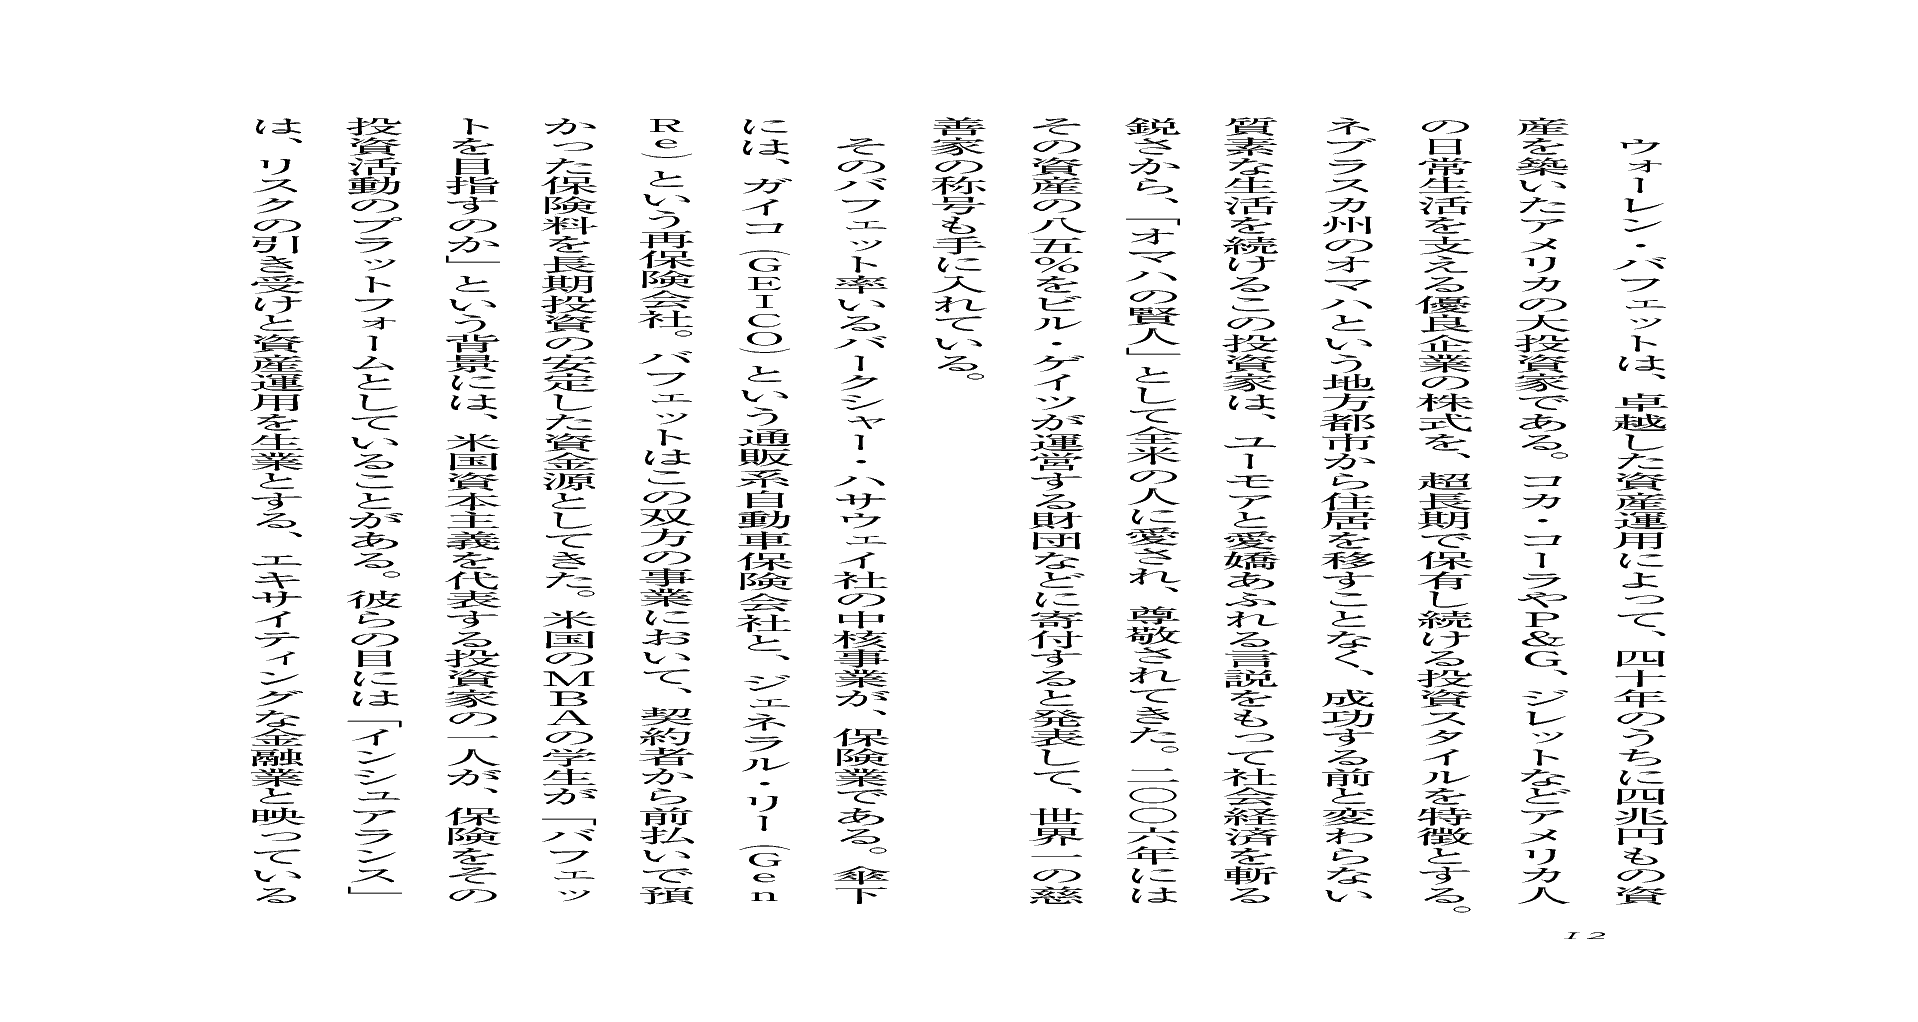 ウォーレン・バフェットは、卓越した資産運用によって、四十年のうちに四兆円もの資
産を築いたアメリカの大投資家である。コカ・コーラやP&G、ジレットなどアメリカ人
の日常生活を支える優良企業の株式を、超長期で保有し続ける投資スタイルを特徴とする。
ネブラスカ州のオマハという地方都市から住居を移すことなく、成功する前と変わらない
質素な生活を続けるこの投資家は、ユーモアと愛嬌あふれる言説をもって社会経済を斬る
鋭さから、「オマハの賢人」として全米の人に愛され、尊敬されてきた。二〇〇六年には
その資産の八五%をビル・ゲイツが運営する財団などに寄付すると発表して、世界一の慈
善家の称号も手に入れている。
　そのバフェット率いるバークシャー・ハサウェイ社の中核事業が、保険業である。傘下
には、ガイコ(GEICO)という通販系自動車保険会社と、ジェネラル・リー(Gen
Re)という再保険会社。バフェットはこの双方の事業において、契約者から前払いで預
かった保険料を長期投資の安定した資金源としてきた。米国のMBAの学生が「バフェッ
トを目指すのか」という背景には、米国資本主義を代表する投資家の一人が、保険をその
投資活動のプラットフォームとしていることがある。彼らの目には「インシュアランス」
は、リスクの引き受けと資産運用を生業とする、エキサイティングな金融業と映っている
12